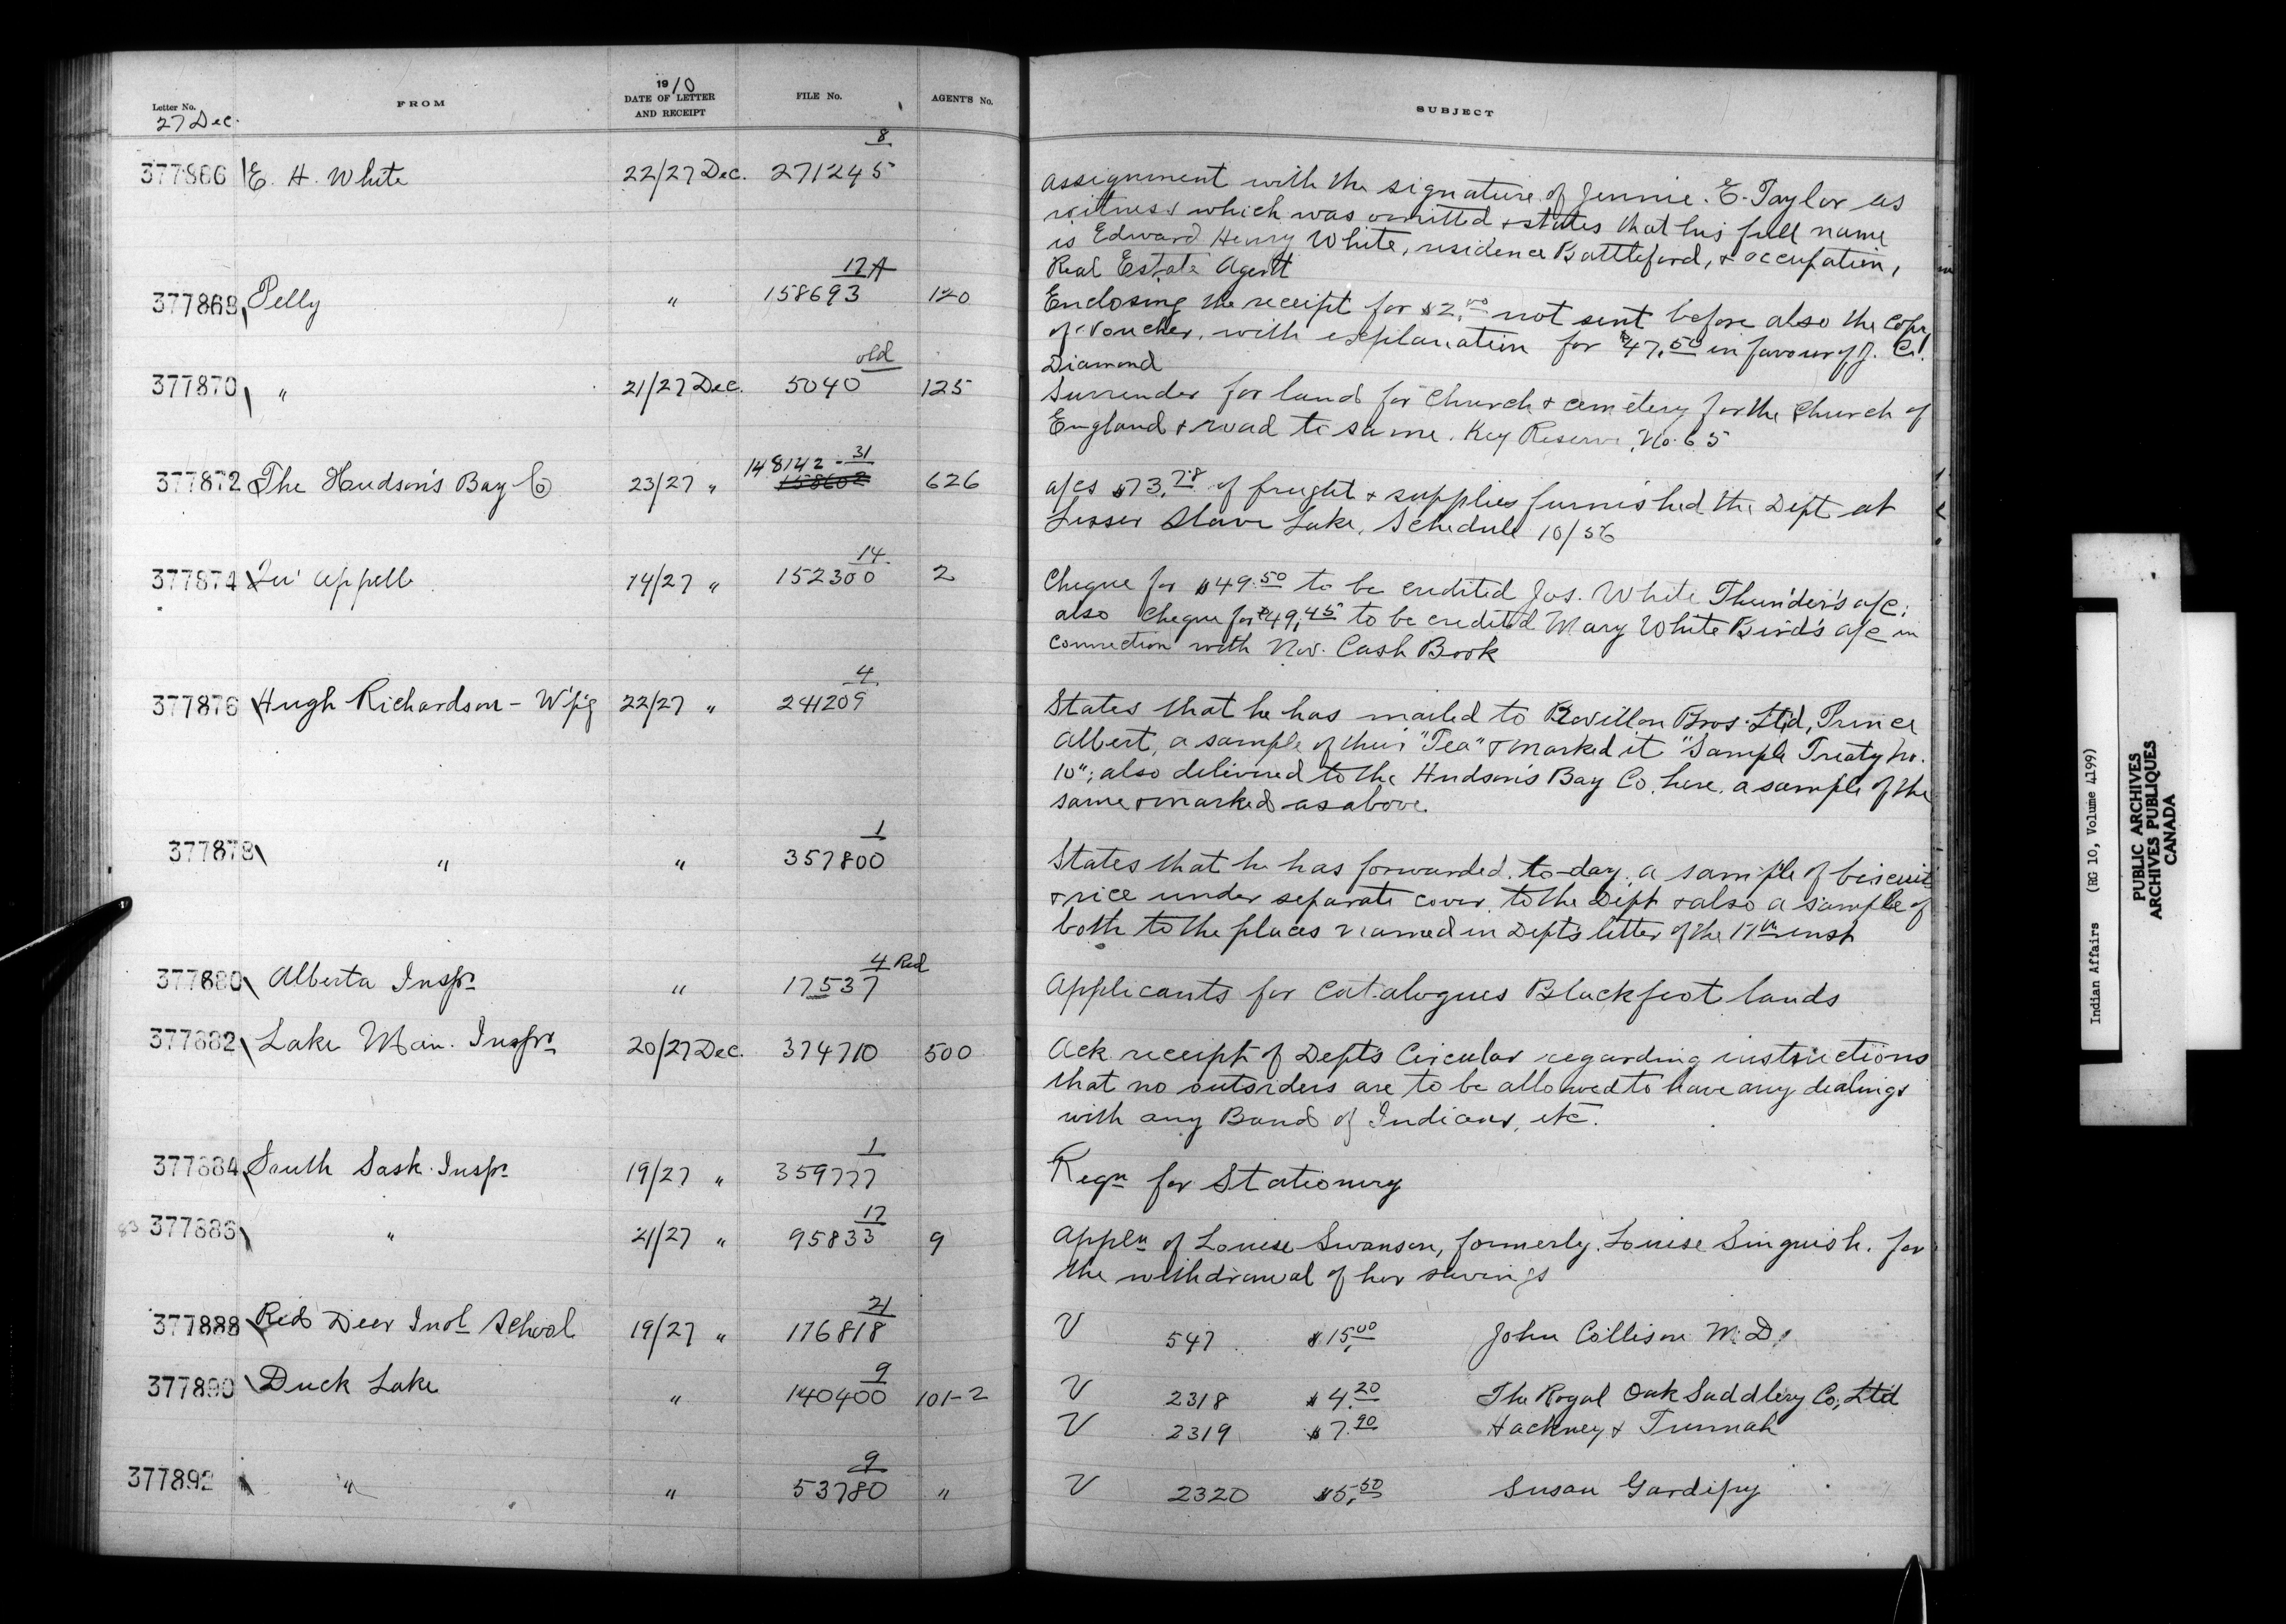 Letter No.
27 Dec.
FROM
1910
DATE OF LETTER
AND RECEIPT
FILE No.
AGENT'S No.
SUBJECT
377866 E. H. White 22/27 Dec. 271245 8
assignment with the signature of Jennie. E. Taylor as
witness which was omitted & states that his full name
is Edward Henry White, residence Battleford, & occupation,
Real Estate Agent
377868 Pelly " 158693 17A 120
Enclosing the receipt for $2.00 not sent before also the Copy
of Voucher, with explanation for $47.50 in favour of J. C.
Diamond
377870 " 21/27 Dec. 5040 old 125
Surrender for land for Church & cemetery for the Church of
England & road to same. Key Reserve, No. 65
377872 The Hudson's Bay Co 23/27 " 148142-31 158602 626
a/cs $73.78 of freight & supplies furnished the Dept at
Lesser Slave Lake, Schedule 10/56
377874 Qu' Appelle 14/27 " 152300 14 2
Cheque for $49.50 to be credited Jos. White Thunder's a/c;
also Cheque for $49.45 to be credited Mary White Bird's a/c in
connection with Nov. Cash Book
377876 Hugh Richardson - W'p'g 22/27 " 241209 4
States that he has mailed to Revillon Bros. Ltd, Prince
Albert, a sample of their "Tea" & marked it "Sample Treaty No.
10"; also delivered to the Hudson's Bay Co. here, a sample of the
same & marked as above.
377878 " " 357800 1
States that he has forwarded, to-day, a sample of biscuit
& rice under separate cover, to the Dept & also a sample of
both to the places named in Dept's letter of the 17th inst
377880 Alberta Inspr " 17537 4 Red
Applicants for Catalogues Blackfoot lands
377882 Lake Man. Inspr 20/27 Dec. 374710 500
Ack receipt of Dept's Circular regarding instructions
that no outsiders are to be allowed to have any dealings
with any Band of Indians, etc.
377884 South Sask. Inspr 19/27 " 359777 1
Reqn for Stationery
83 377886 " 21/27 " 95833 17 9
Appln of Louise Swanson, formerly Louise Singuish. for
the withdrawal of her savings
377888 Red Deer Indl School 19/27 " 176818 21
V 547 $15.00 John Collison M.D.
377890 Duck Lake " 140400 9 101-2
V 2318 $4.20 The Royal Oak Saddlery Co, Ltd
V 2319 $7.90 Hackney & Tunnah
377892 " " 53780 9 "
V 2320 $5.50 Susan Gardipy
Indian Affairs (RG 10, Volume 4199)
PUBLIC ARCHIVES
ARCHIVES PUBLIQUES
CANADA